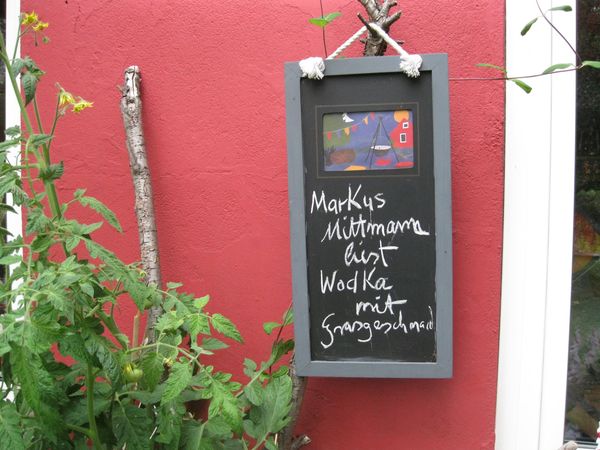 Markus
Mittmann
liest
Wodka
mit
Grasgeschmack